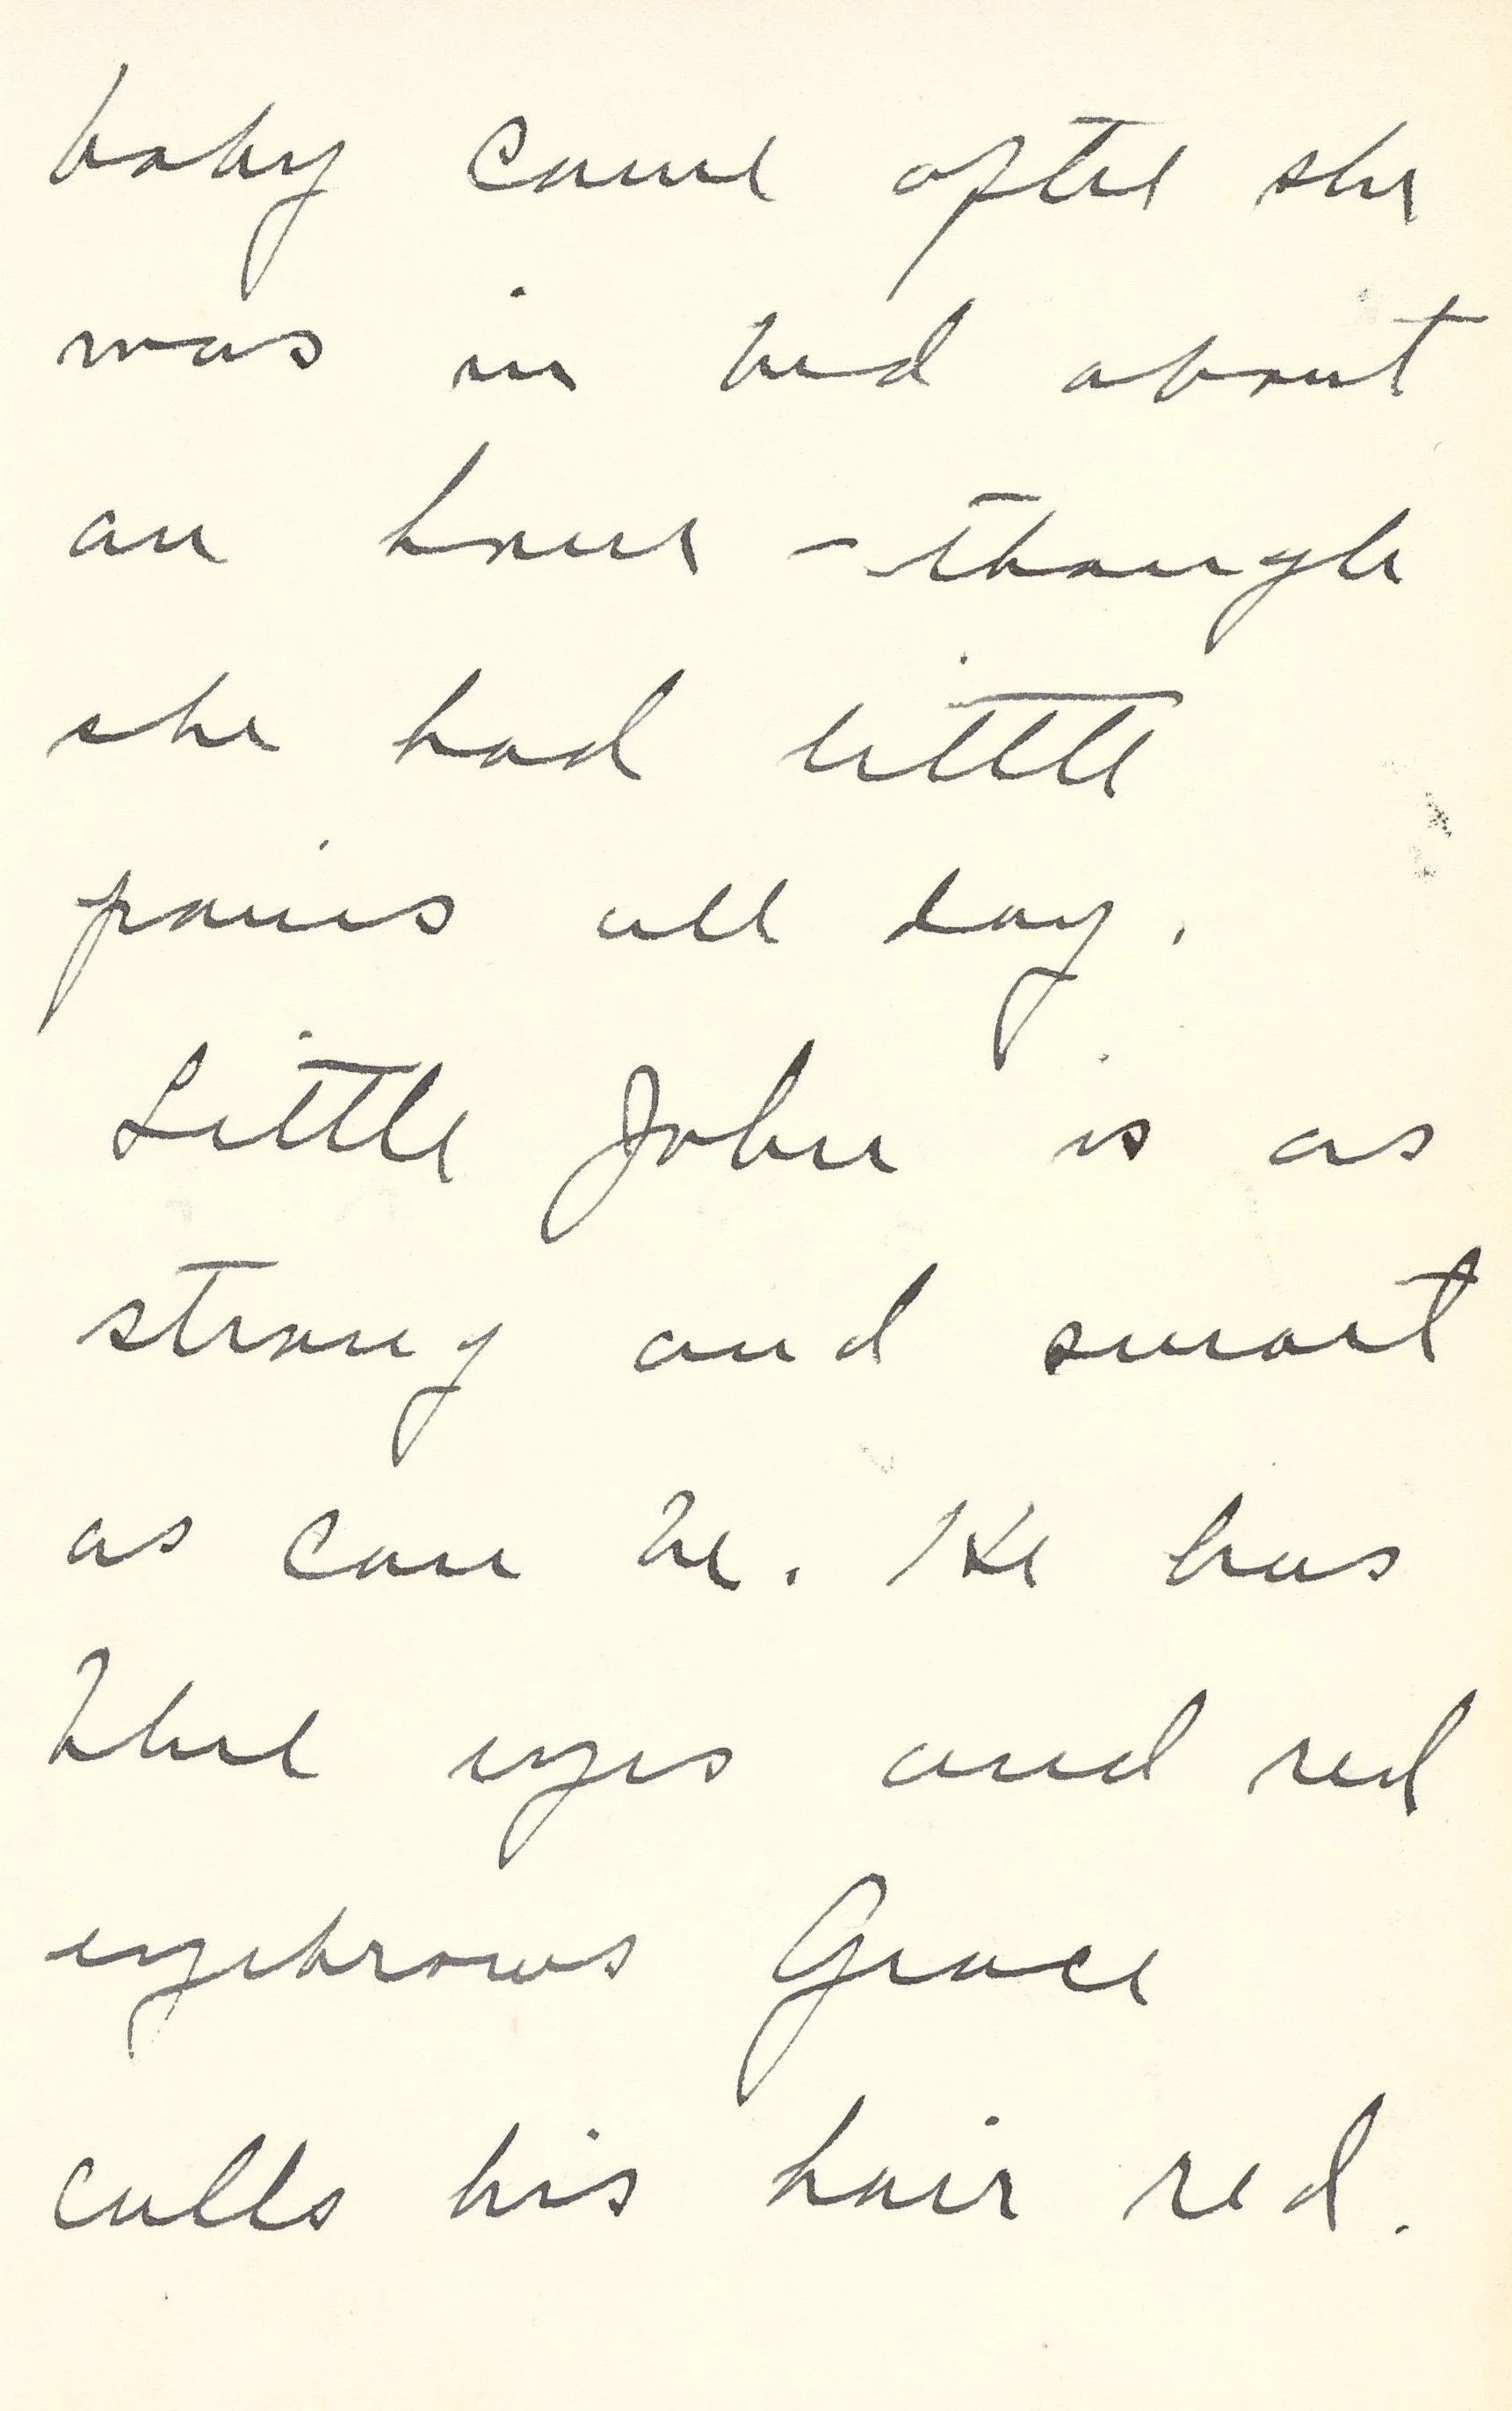 baby came after she
was in bed about
an hour - though
she had little
pains all day.
Little John is as
strong and smart
as can be. He has
blue eyes and red
eyebrows Grace
calls his hair red.